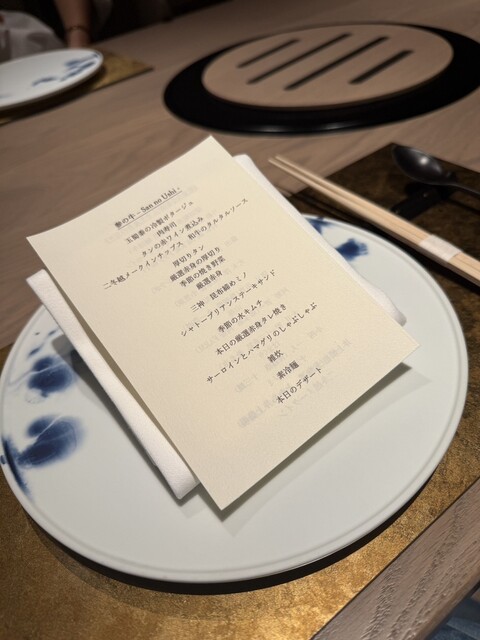 参の牛 - San no Ushi -
玉蜀黍の冷製ポタージュ
肉寿司
タンの赤ワイン煮込み
二年越メークインチップス 和牛のタルタルソース
厚切りタン
厳選赤身の厚切り
季節の焼き野菜
厳選赤身
三神 昆布締めミノ
シャトーブリアンステーキサンド
季節の水キムチ
本日の厳選赤身タレ焼き
サーロインとハマグリのしゃぶしゃぶ
雑炊
素冷麺
本日のデザート